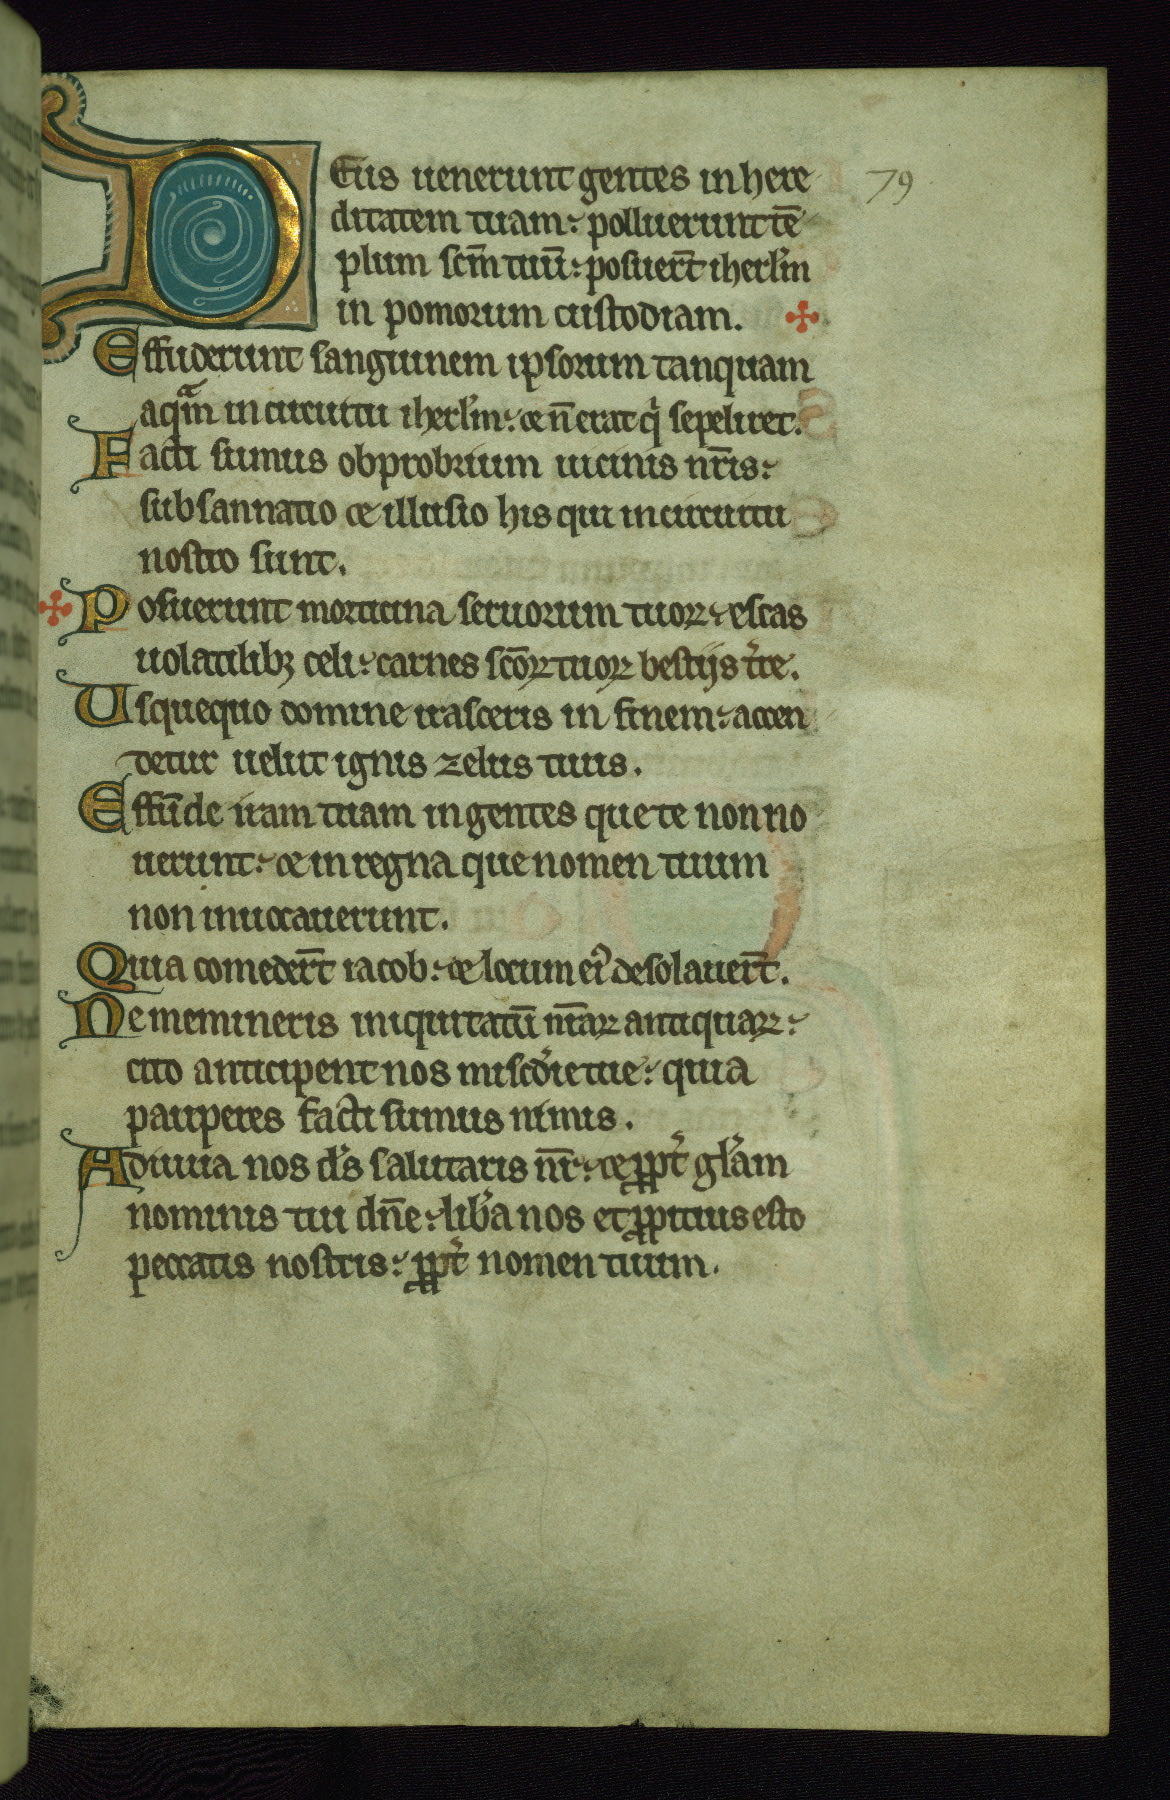 DEus uenerunt gentes in here 79
ditatem tuam: polluerunt tē
plum scm̄ tuū: posuert̄ iherl̄m
in pomorum custodiam.
Effuderunt sanguinem ipsorum tanquam
aqᵃm in circuitu iherl̄m: & n̄ erat qͥ sepeliret.
Facti sumus obprobrium uicinis nr̄is:
subsannatio & illusio his qui in circuitu
nostro sunt.
Posuerunt morticina seruorum tuoꝝ: escas
uolatilibꝫ celi: carnes scōꝝ tuoꝝ bestijs tr̄e.
Usquequo domine irasceris in finem: accen
detur uelut ignis zelus tuus.
Effūde iram tuam in gentes que te non no
uerunt: & in regna que nomen tuum
non inuocauerunt.
Quia comedert̄ iacob: & locum eiꝰ desolauert̄.
Ne memineris iniquitatū nr̄aꝝ antiquaꝝ:
cito anticipent nos misc̄die tue: quia
pauperes facti sumus nimis.
Adiuua nos d̄s salutaris nr̄: & ꝓpt̄ gl̄am
nominis tui dn̄e: lib̄a nos et ꝓpitius esto
peccatis nostris: ꝓpt̄ nomen tuum.